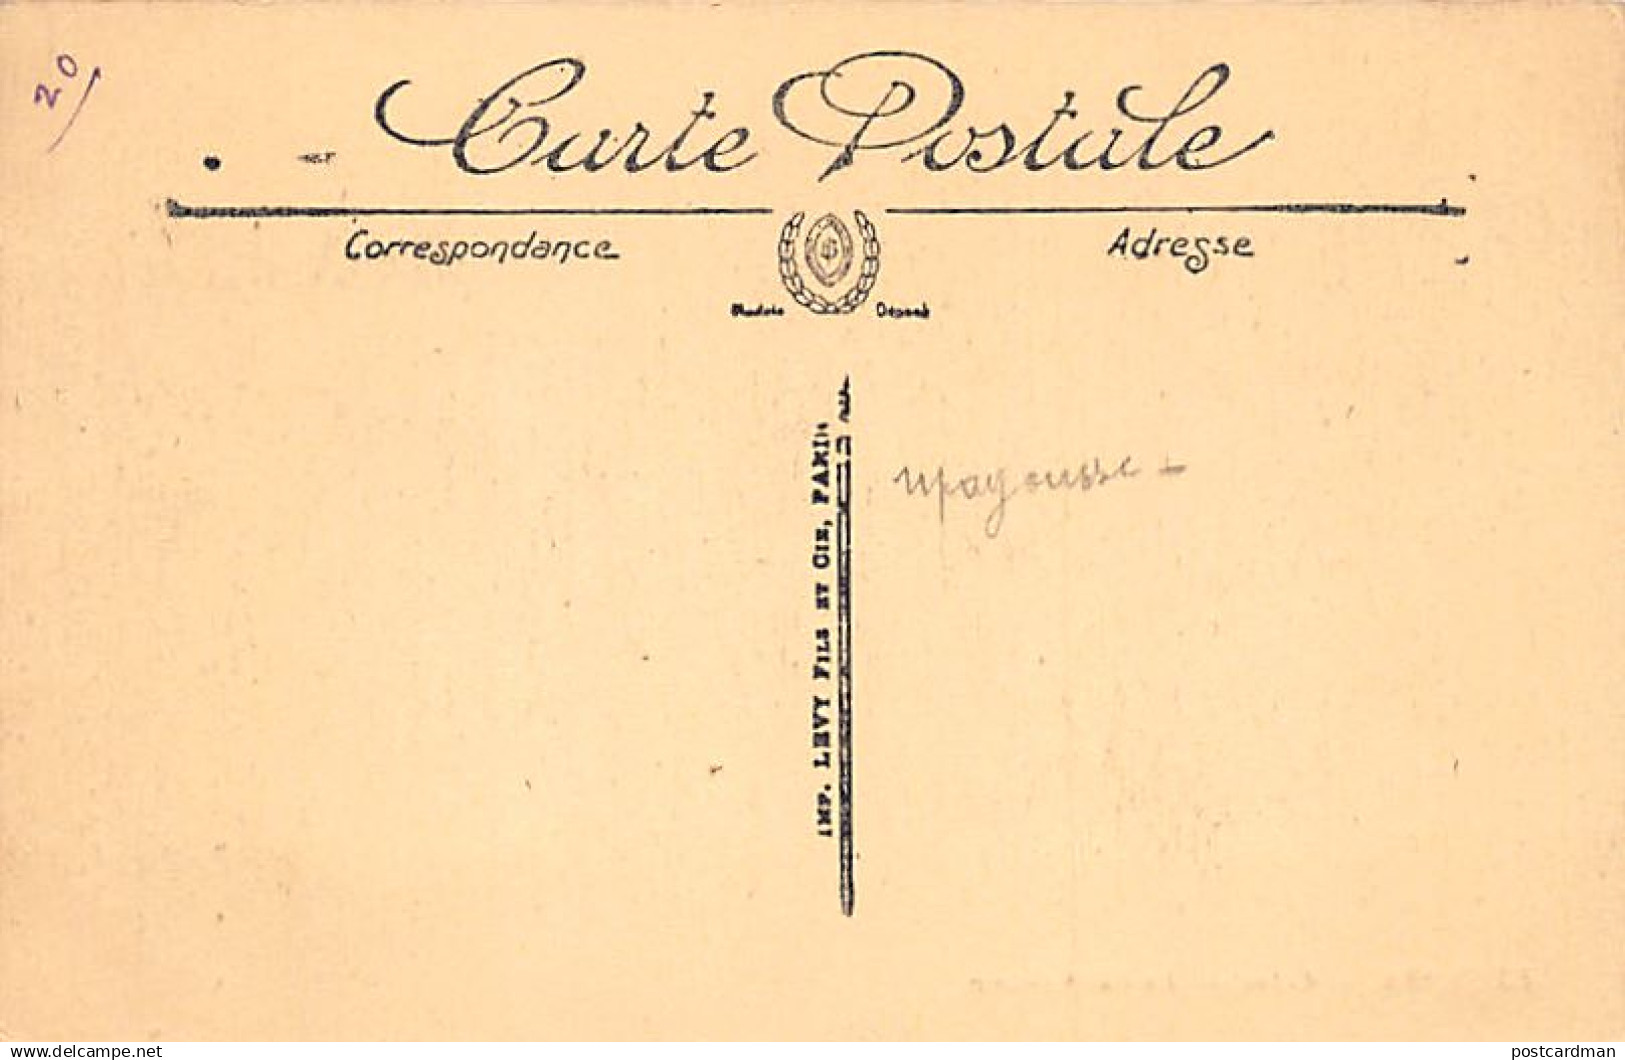 20
Carte Postale
Correspondance
Adresse
Modèle Déposé
IMP. LEVY FILS ET CIE, PARIS
www.delcampe.net
postcardman